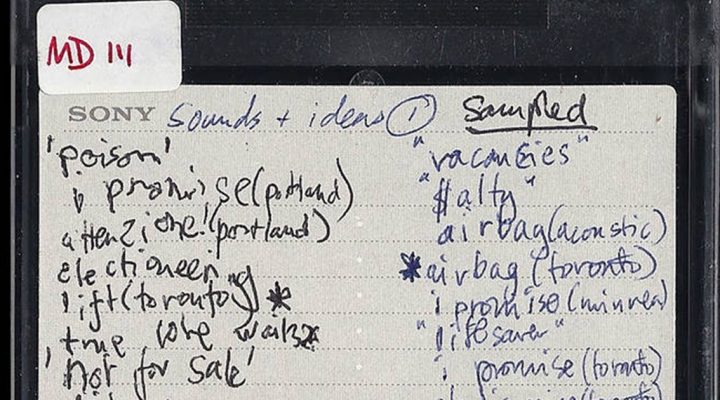 MD 111
SONY sounds + ideas ① sampled
'poison'
i promise (portland)
attenzione! (portland)
electioneering
lift (toronto) *
true love waits *
'not for sale'
"vacancies"
"$alty"
airbag (acoustic)
*airbag (toronto)
i promise (minnea)
"lifesaver"
i promise (toronto)